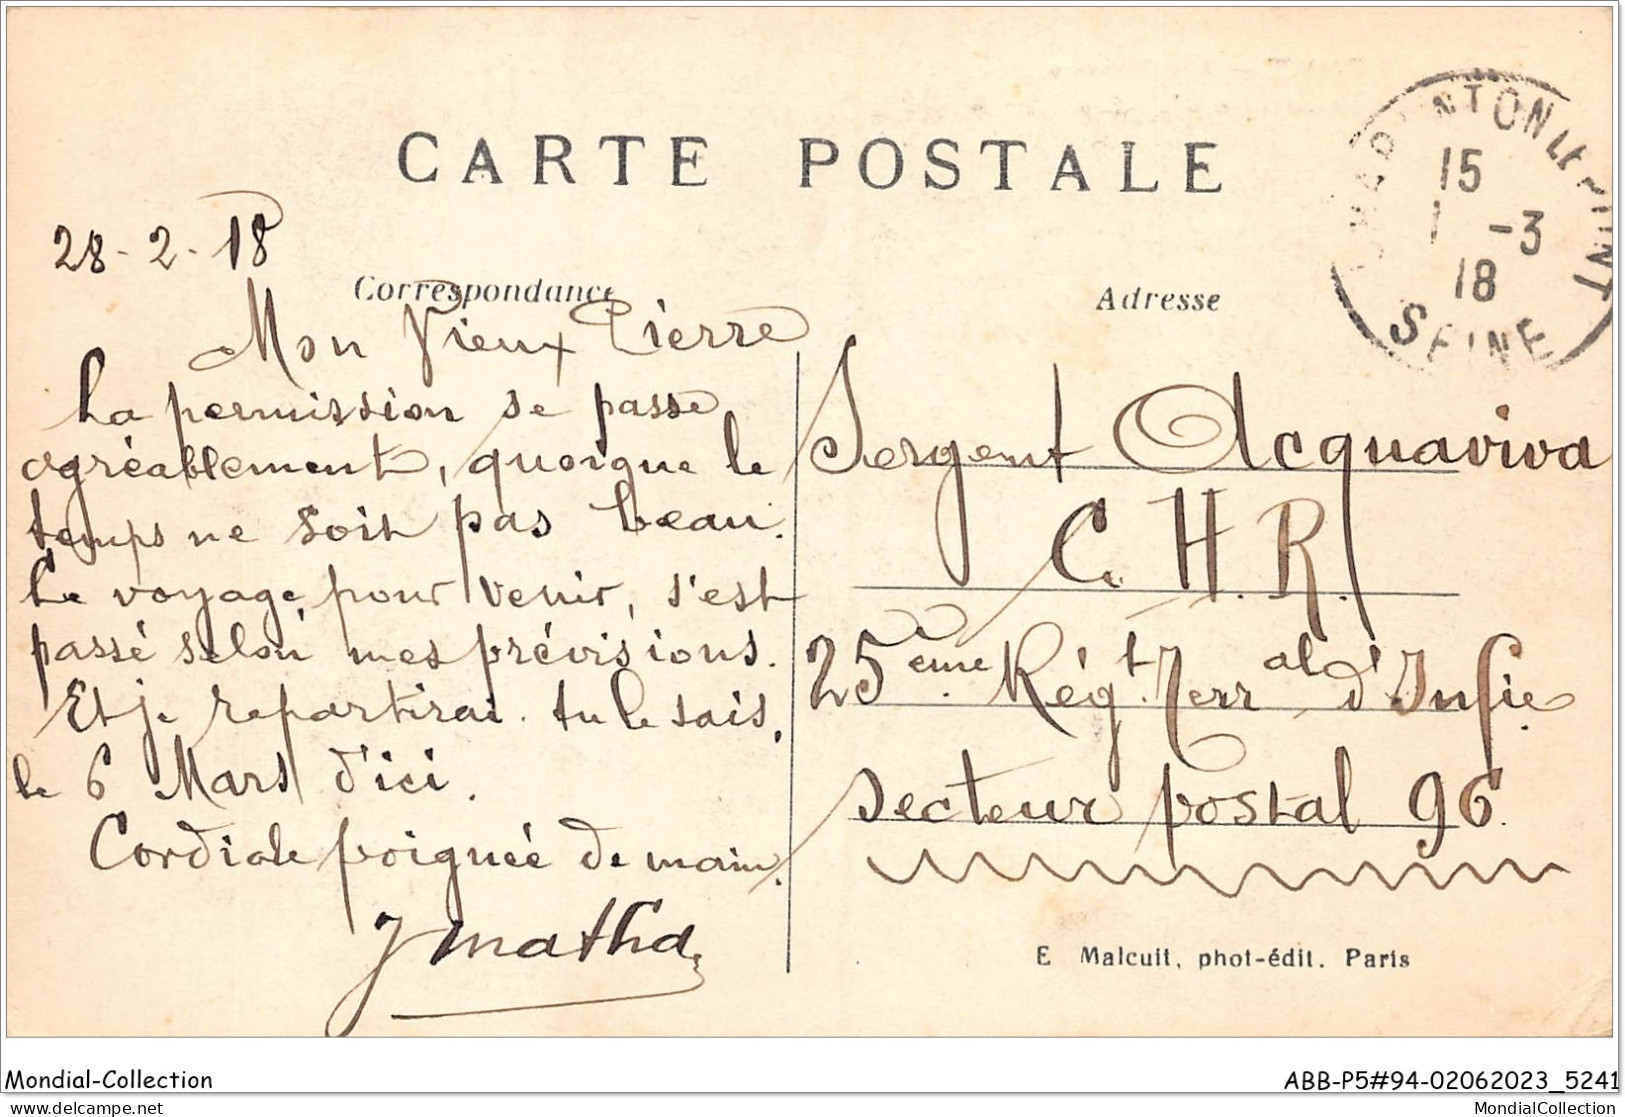 CARTE POSTALE
28-2-18
Correspondance
Mon Vieux Pierre
La permission se passe
agréablement, quoique le
temps ne soit pas beau.
Le voyage, pour venir, s'est
passé selon mes prévisions.
Et je repartirai. tu le sais,
le 6 Mars d'ici.
Cordiale poignée de main.
JMatha
Adresse
Sergent Acquaviva
C. H. R.
25ème Rég.t Terr al d'Infie
Secteur postal 96
CHARENTON LE PONT
15
1 -3
18
SEINE
E Malcuit, phot-édit. Paris
Mondial-Collection
ABB-P5#94-02062023_5241
www.delcampe.net
MondialCollection